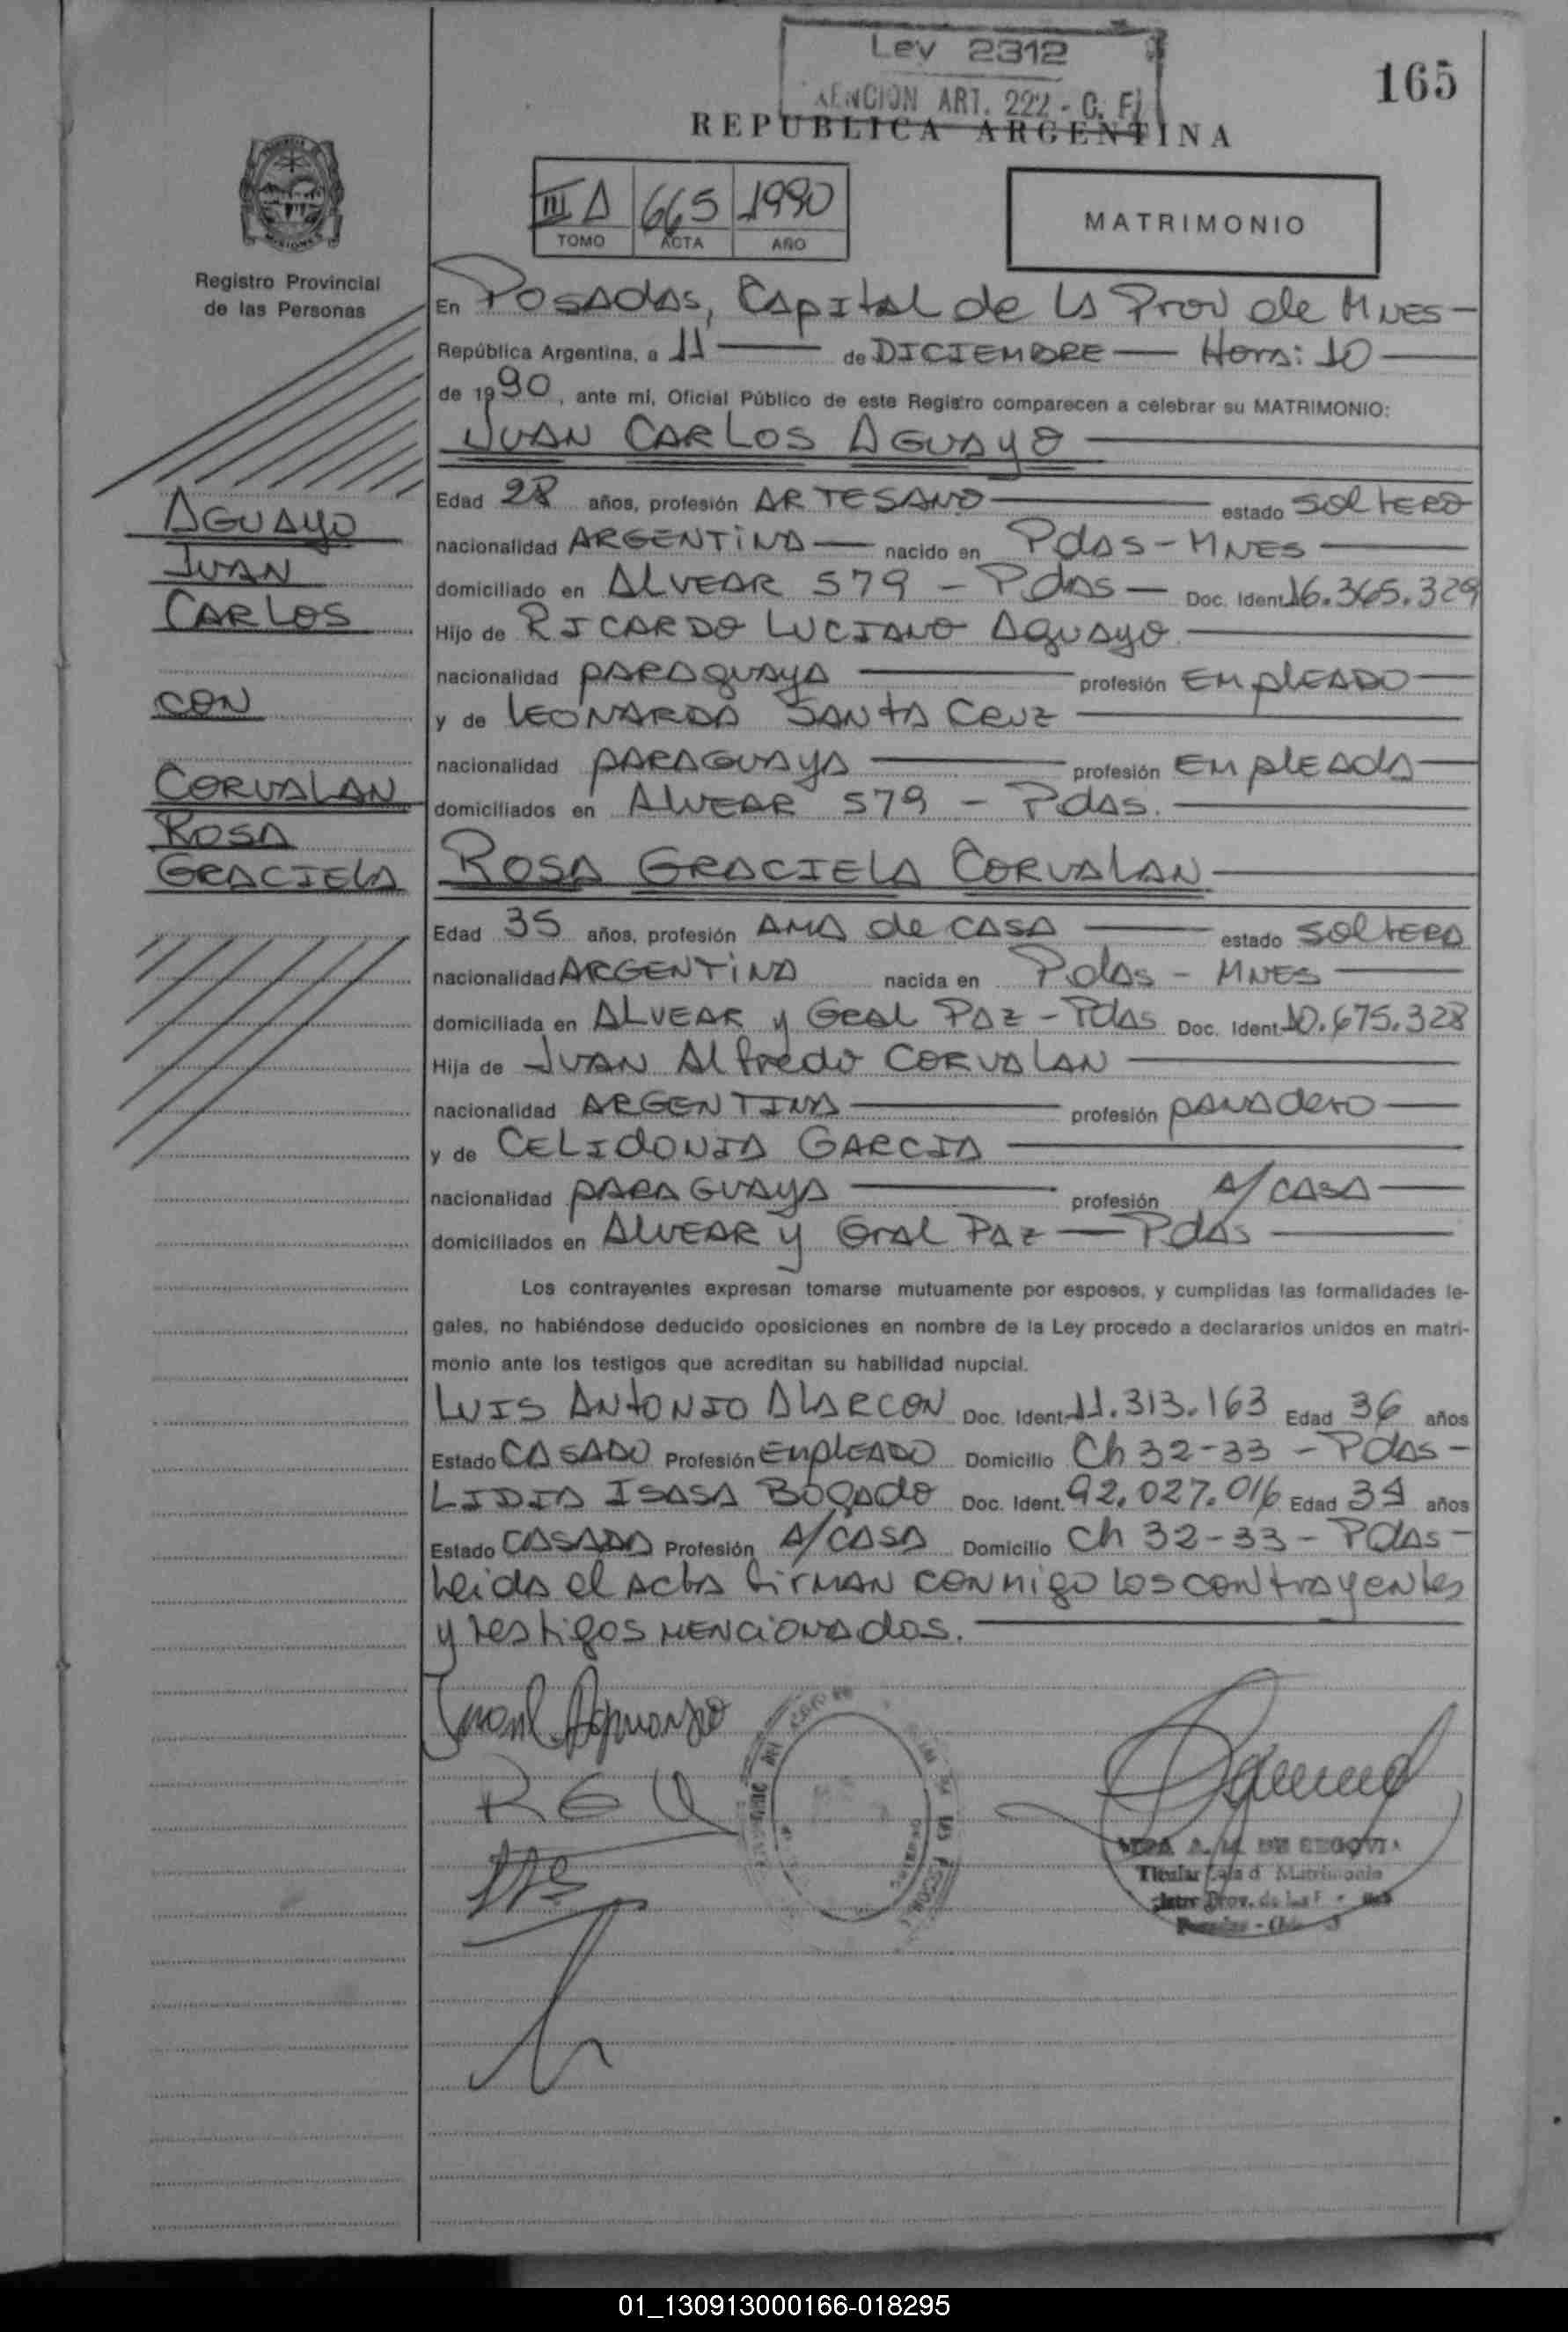 Ley 2312
ART. 222 - C. F.
165
REPUBLICA ARGENTINA
III A 665 1990
TOMO ACTA AÑO
MATRIMONIO
MISIONES
Registro Provincial
de las Personas
En Posadas, Capital de la Prov de Mnes
República Argentina, a 11 de DICIEMBRE Hora: 10
de 1990, ante mi, Oficial Público de este Registro comparecen a celebrar su MATRIMONIO:
JUAN CARLOS AGUAYO
Edad 28 años, profesión ARTESANO estado SOLTERO
nacionalidad ARGENTINA nacido en Pdas - MNES
domiciliado en ALVEAR 579 - Pdas Doc. Ident 16.365.329
Hijo de RICARDO LUCIANO Aguayo
nacionalidad PARAguayA profesión EmpleADO
y de LEONARDA SANTA CRUZ
nacionalidad PARAGUAyA profesión EmpleAdA
domiciliados en ALVEAR 579 - Pdas.
ROSA GRACIELA CORVALAN
Edad 35 años, profesión AMA de CASA estado SOLTERA
nacionalidad ARGENTINA nacida en Pdas - MNES
domiciliada en ALVEAR y Gral PAZ - Pdas Doc. Ident 10.675.328
Hija de JUAN Alfredo CORVALAN
nacionalidad ARGENTINA profesión panadero
y de CELIDONIA GARCIA
nacionalidad PARAGUAyA profesión A/CASA
domiciliados en ALVEAR y Gral PAZ - Pdas
Los contrayentes expresan tomarse mutuamente por esposos, y cumplidas las formalidades le-
gales, no habiéndose deducido oposiciones en nombre de la Ley procedo a declararlos unidos en matri-
monio ante los testigos que acreditan su habilidad nupcial.
LUIS ANTONIO ALARCON Doc. Ident. 11.313.163 Edad 36 años
Estado CASADO Profesión EMpleADO Domicilio Ch 32-33 - Pdas -
LIDIA ISASA BOGAdO Doc. Ident. 92.027.016 Edad 34 años
Estado CASADA Profesión A/CASA Domicilio Ch 32-33 - Pdas -
Leida el Acta firman conmigo los contrayentes
y testigos mencionados.
AGUAYO
JUAN
CARLOS
CON
CORVALAN
ROSA
GRACIELA
A. M. DE SEGOVIA
Titular
Prov. de
01_130913000166-018295